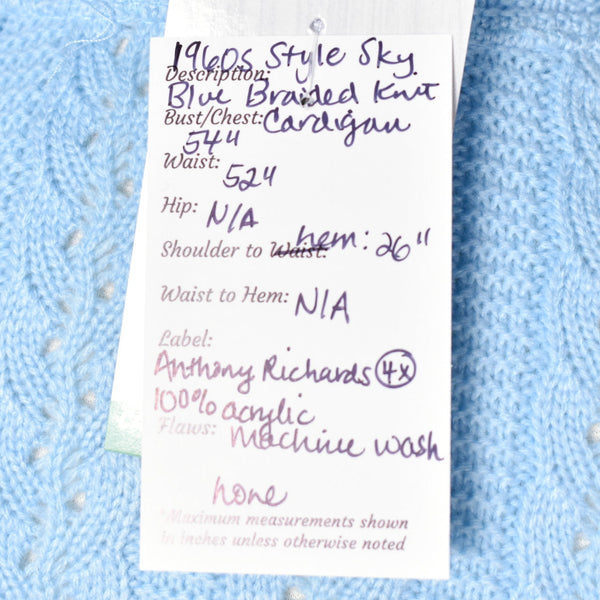 1960s Style Sky
Description:
Blue Braided Knit
Bust/Chest: Cardigan
54"
Waist:
52"
Hip: N/A
Shoulder to Waist: hem: 26"
Waist to Hem: N/A
Label:
Anthony Richards 4x
100% acrylic
Flaws: Machine wash
none
*Maximum measurements shown
in inches unless otherwise noted